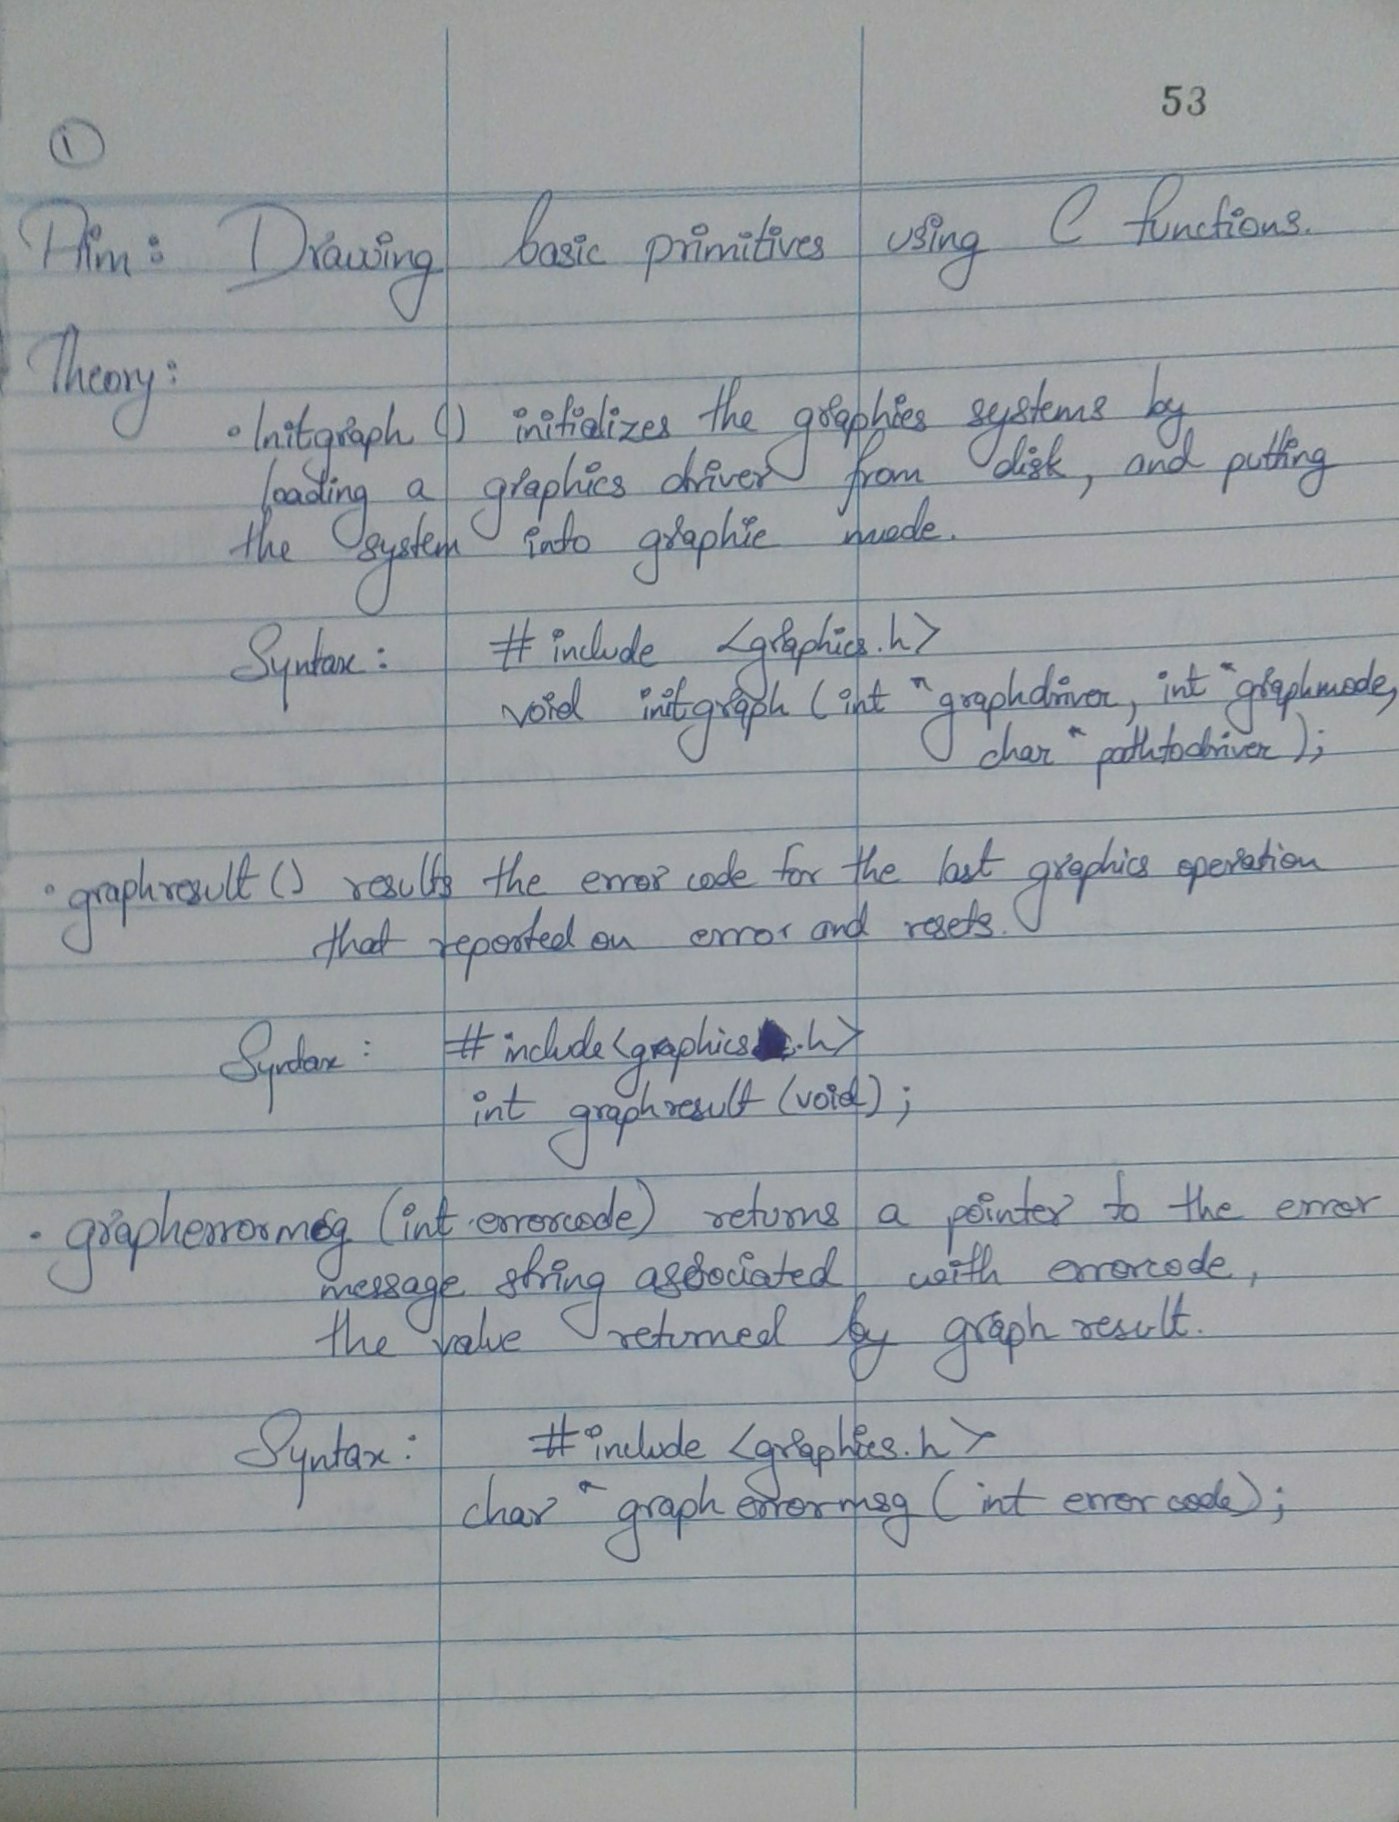 53
1
Aim: Drawing basic primitives using C functions.
Theory:
• Initgraph () initializes the graphics systems by
loading a graphics driver from disk, and putting
the system into graphic mode.
Syntax: # include <graphics.h>
void initgraph (int * graphdriver, int * graphmode,
char * pathtodriver );
• graphresult () results the error code for the last graphics operation
that reported an error and resets.
Syntax: # include <graphics.h>
int graphresult (void) ;
• grapherrormsg (int errorcode) returns a pointer to the error
message string associated with errorcode,
the value returned by graph result.
Syntax: # include <graphics.h>
char * graph errormsg ( int error code) ;